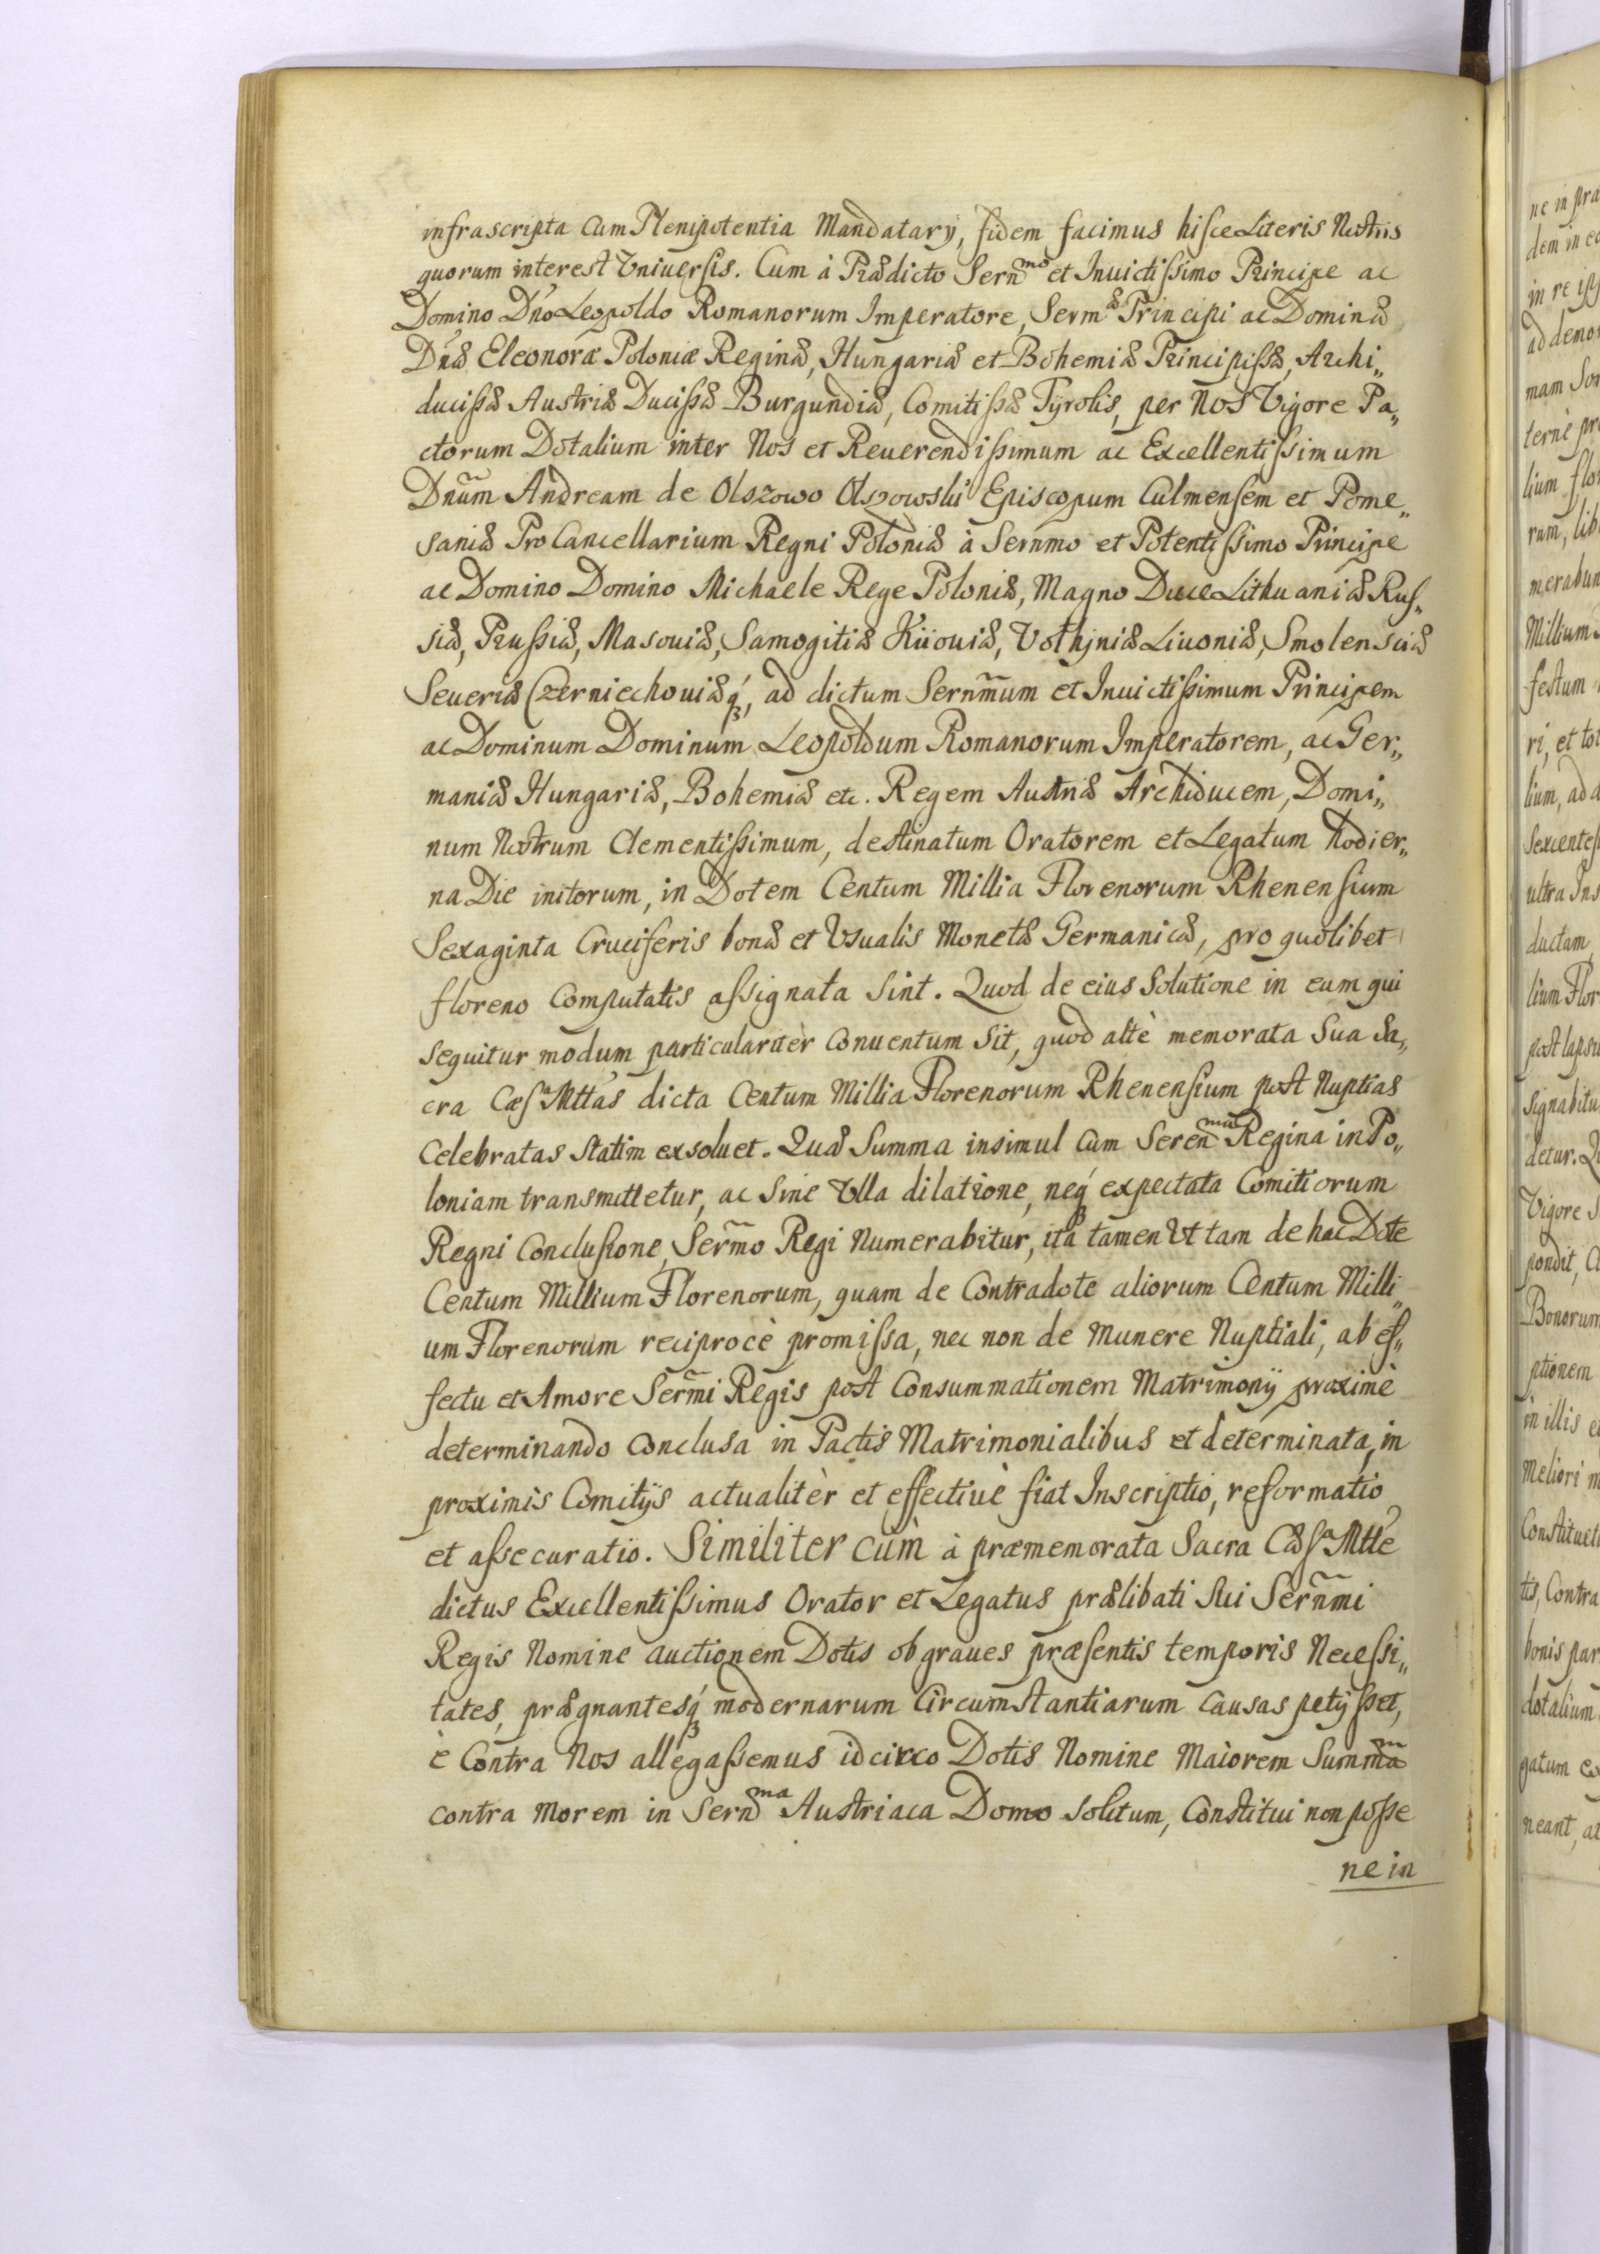 infrascripta cum Plenipotentia Mandatarÿ, fidem facimus hisce Literis Nostris
quorum interest Vniuersis. Cum à Prædicto Sern̄mo et Inuictissimo Principe ac
Domino Dn̄o Leopoldo Romanorum Imperatore, Sermæ Principi ac Dominæ
Dn̄æ Eleonoræ Poloniæ Reginæ, Hungariæ et Bohemiæ Principissæ, Archi„
ducissæ Austriæ Ducissæ Burgundiæ, Comitissæ Tÿrolis, per Nos Vigore Pa„
ctorum Dotalium inter Nos et Reuerendissimum ac Excellentissimum
Dnūm Andream de Olszowo Olszowski Episcopum Culmensem et Pome„
saniæ Pro Cancellarium Regni Poloniæ à Sernmo et Potentissimo Principe
ac Domino Domino Michaele Rege Poloniæ, Magno Duce Lithuaniæ Rus„
siæ, Prussiæ, Masouiæ, Samogitiæ Kiiouiæ, Volhjniæ Liuoniæ, Smolensciæ
Seueriæ Czerniechouiæq́ꝫ, ad dictum Sern̄mum et Inuictissimum Principem
ac Dominum Dominum Leopoldum Romanorum Imperatorem, ac Ger„
maniæ Hungariæ, Bohemiæ etc. Regem Austriæ Archiducem, Domi„
num Nostrum Clementissimum, destinatum Oratorem et Legatum hodier„
na Die initorum, in Dotem Centum Millia Florenorum Rhenensium
Sexaginta Cruciferis bonæ et Vsualis Monetæ Germanicæ, pro quolibet
floreno Computatis assignata sint. Quod de eius Solutione in eum qui
sequitur modum particularitèr Conuentum Sit, quod altè memorata Sua Sa„
cra Cæsa Mttas dicta Centum Millia Florenorum Rhenensium post Nuptias
Celebratas Statim exsoluet. Quæ Summa insimul Cum Serenma Regina in Po„
loniam transmittetur, ac Sine Vlla dilatione, neq́ꝫ expectata Comitiorum
Regni Conclusione, Serm̄o Regi Numerabitur, ita tamen Vt tam de hac Dote
Centum Millium Florenorum, quam de Contradote aliorum Centum Milli„
um Florenorum reciprocè promissa, nec non de Munere Nuptiali, ab ef„
fectu et Amore Serm̄i Regis post Consummationem Matrimonÿ proximè
determinando Conclusa in Pactis Matrimonialibus et determinata, in
proximis Comitÿs actualitèr et effectiuè fiat Inscriptio, reformatio
et assecuratio. Similiter cùm à præmemorata Sacra Cæsa Mtte
dictus Excellentissimus Orator et Legatus prælibati sui Sern̄mi
Regis Nomine auctionem Dotis ob graues præsentis temporis Necessi„
tates, prægnantesq́ꝫ modernarum Circumstantiarum Causas petÿsset,
è Contra Nos allegassemus idcirco Dotis Nomine Maiorem Summam
contra Morem in Sernma Austriaca Domo solitum, Constitui non posse
ne in
ne in pra
dem in ea
ad demon
mam
ternè pr
lium flor
rum, lib
merabun
Millium
festum
ri, et tot
lium, ad
ultra Ins
ductam
lium Flor
post lapsu
signabitu
detur. Q
Vigore S
pondit,
Bonorum
ptionem
in illis e
meliori m
Constituet
tis, Contra
bonis par
dotalium
gatum ex
neant, at